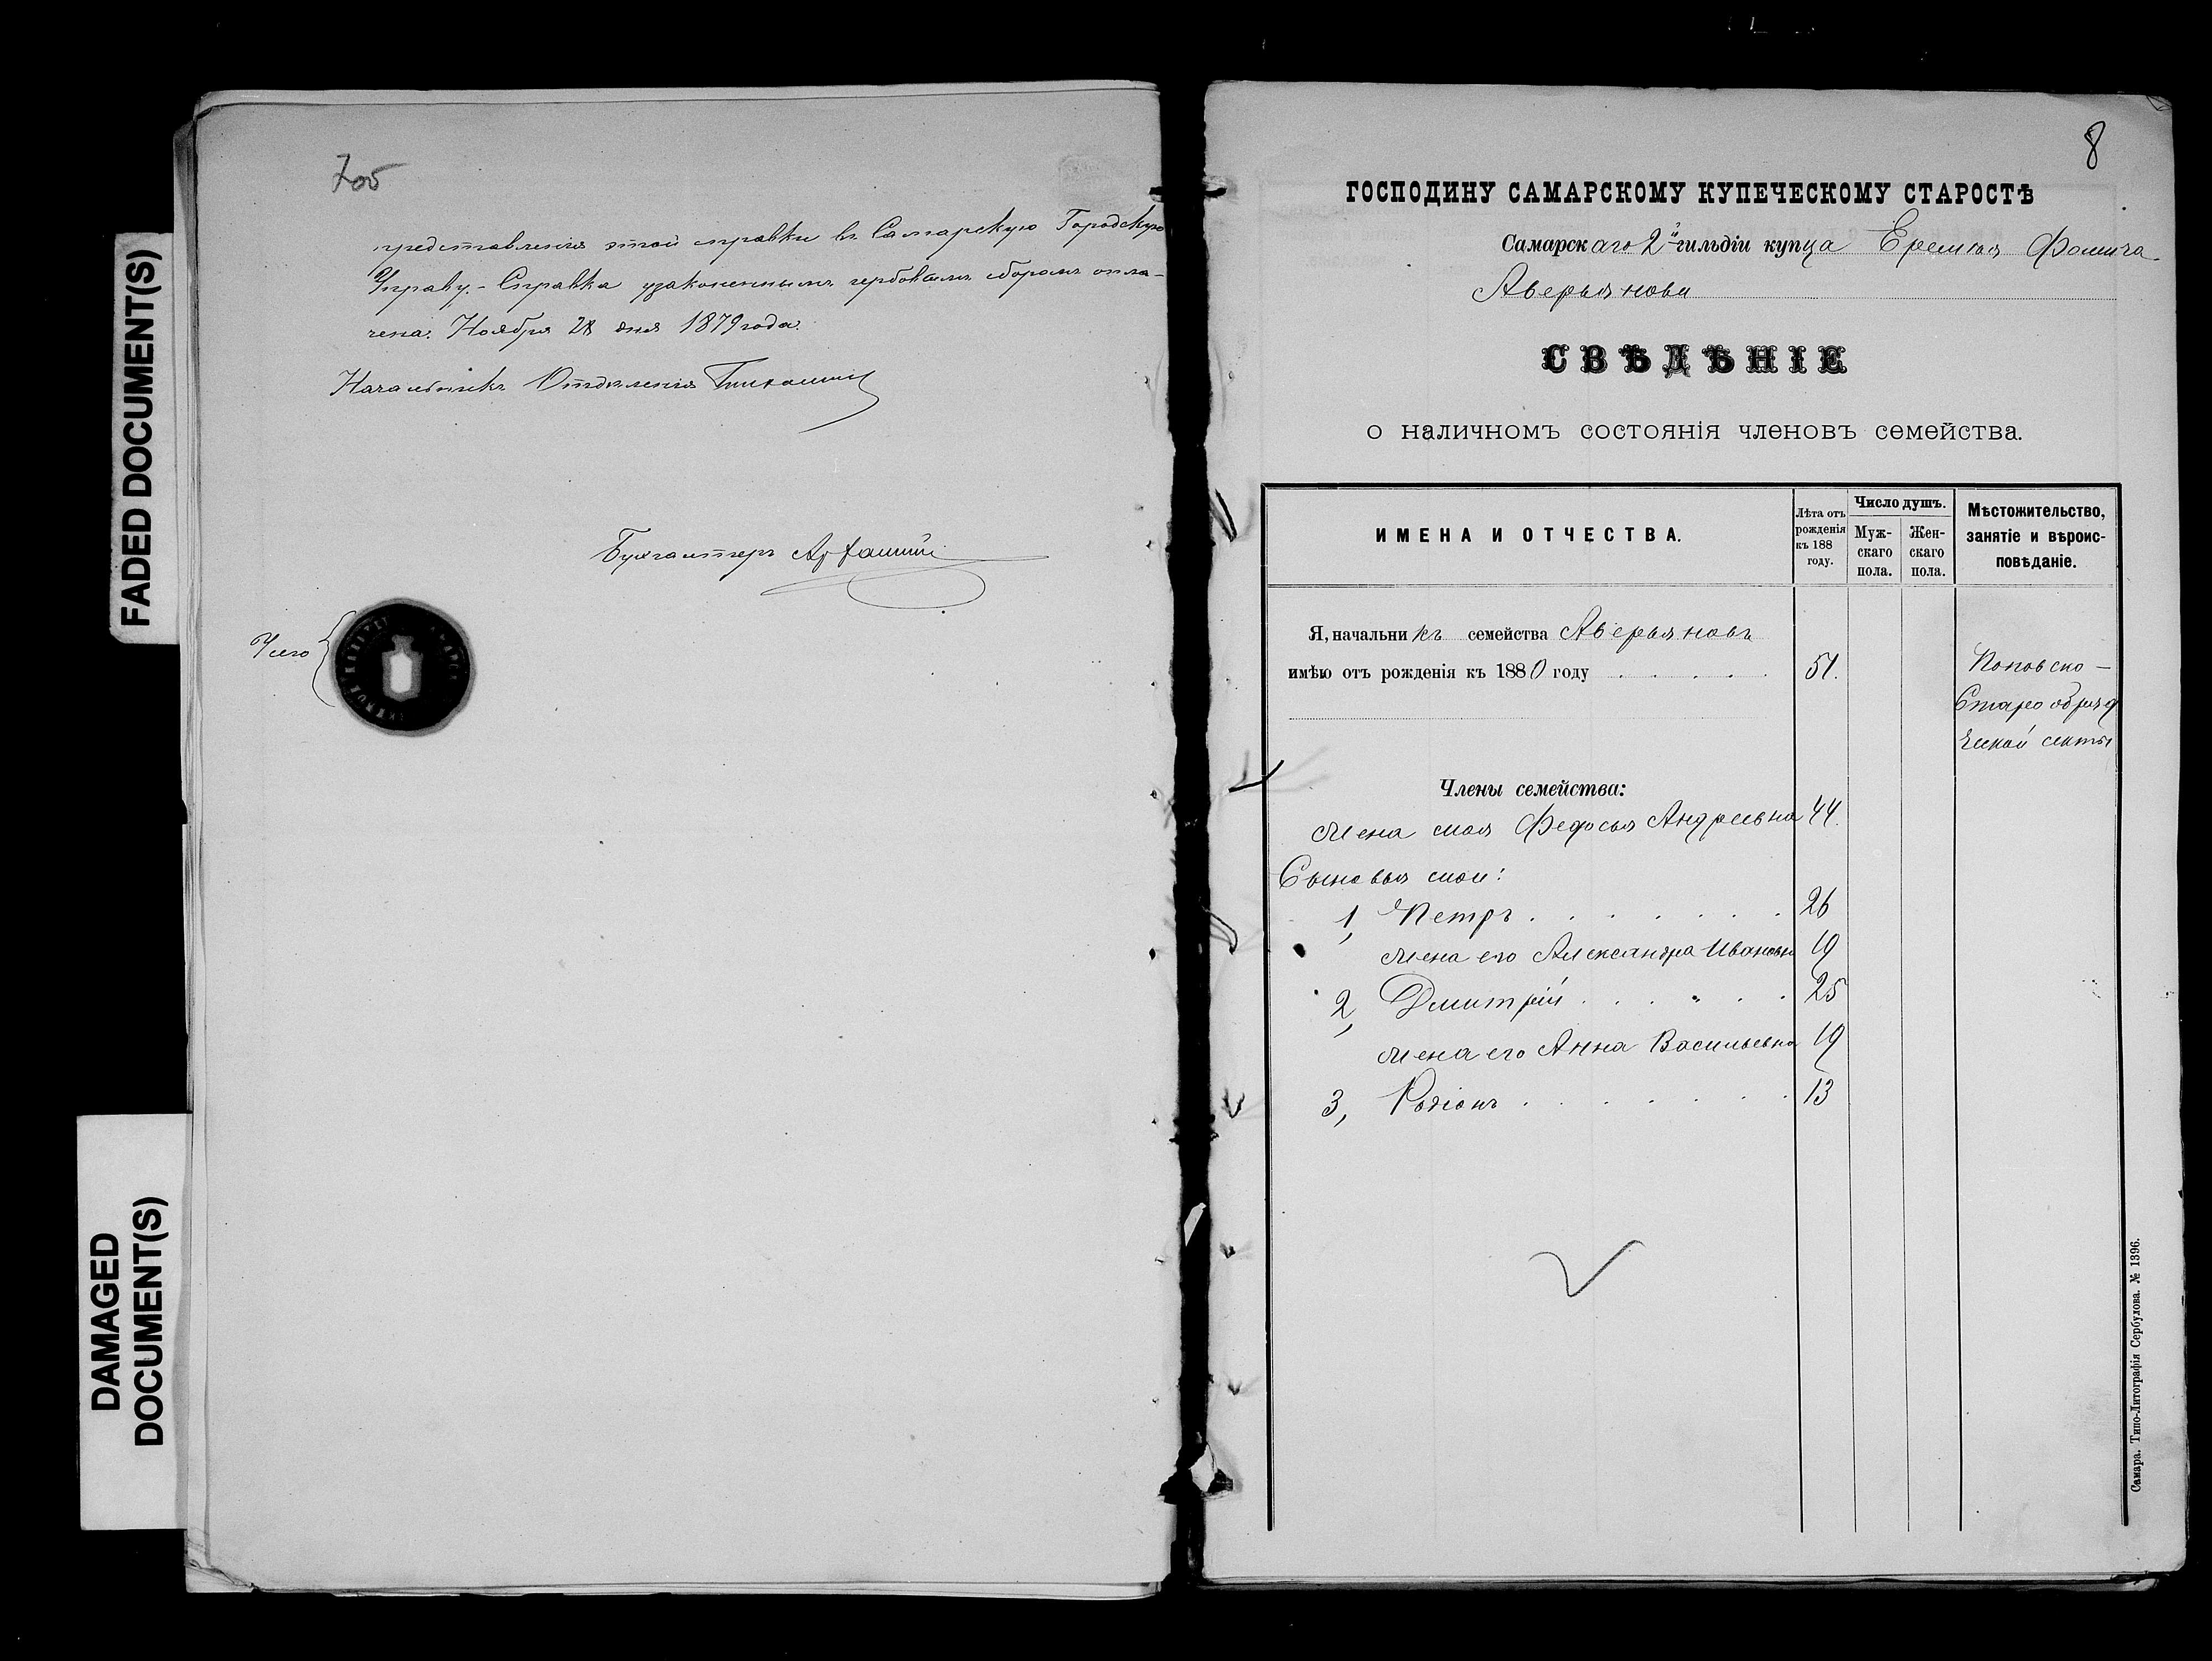 FADED DOCUMENT(S)
DAMAGED
DOCUMENT(S)
7об
представленія этой справки въ Самарскую Городскую
Управу. - Справка узаконеннымъ гербовымъ сборомъ опла-
чена. Ноября 28 дня 1879 года.
Начальникъ Отдѣленія
Бухгалтеръ
8
ГОСПОДИНУ САМАРСКОМУ КУПЕЧЕСКОМУ СТАРОСТѢ
Самарскаго 2й гильдіи купца Еремѣя Фомича
Аверьянова
СВѢДѢНІЕ
о наличномъ состоянія членовъ семейства.
ИМЕНА И ОТЧЕСТВА.
Лѣта отъ рожденія къ 188 году.
Число душъ.
Муж-
скаго
пола.
Жен-
скаго
пола.
Мѣстожительство,
занятіе и вѣроис-
повѣданіе.
Я, начальникъ семейства Аверьяновъ
имѣю отъ рожденія къ 1880 году . . . . . 51.
Поповско-
Старообряд
ческой секты
Члены семейства:
Жена моя Федосья Андреевна 44.
Сыновья мои:
1, Петръ . . . . . . . 26
жена его Александра Ивановна 19
2, Дмитрій . . . . . . 25
жена его Анна Васильевна 19
3, Родіонъ . . . . . . . 13
Самара. Типо-Литографія Сербулова. № 1396.